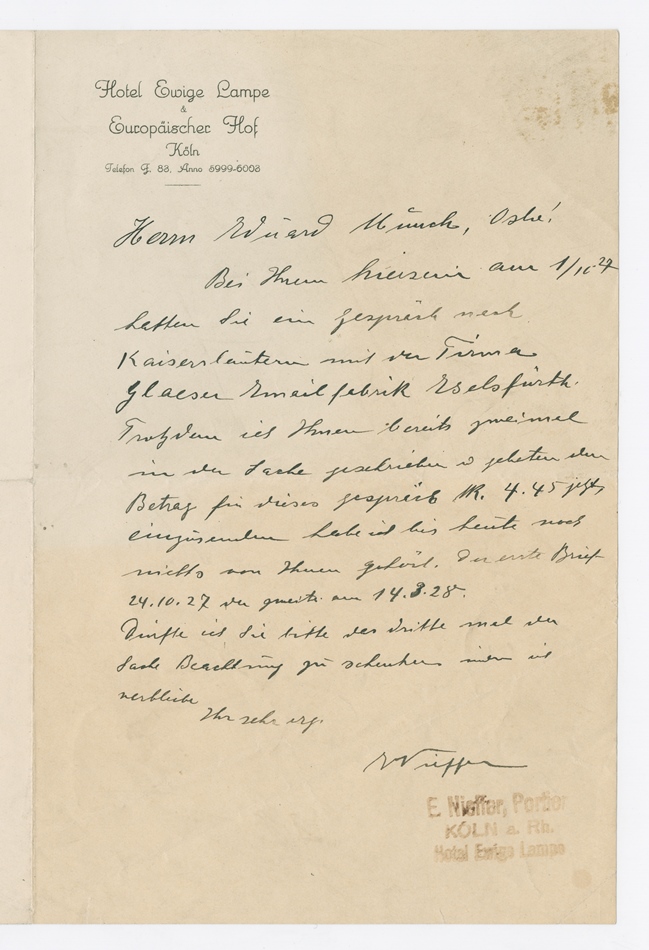 Hotel Ewige Lampe
&
Europäischer Hof
Köln
Telefon 83, Anno 5999-6003
Herrn Eduard Münch, Oslo!
Bei Ihrem hiersein am 1/10 27
hatten Sie ein Gespräch nach
Kaiserslautern mit der Firma
Glaeser Emailfabrik Eselsfürth.
Trotzdem ich Ihnen bereits zweimal
in der Sache geschrieben u gebeten den
Betrag für dieses gespräch M. 4.45
einzusenden habe ich bis heute noch
nichts von Ihnen gehört. Der erste Brief
24.10.27 der zweite am 14.3.28.
Dürfte ich Sie bitte das dritte mal der
Sache Beachtung zu schenken indem ich
verbleibe
Ihr sehr erg.
E Nieffer
E. Nieffer, Portier
KÖLN a. Rh.
Hotel Ewige Lampe